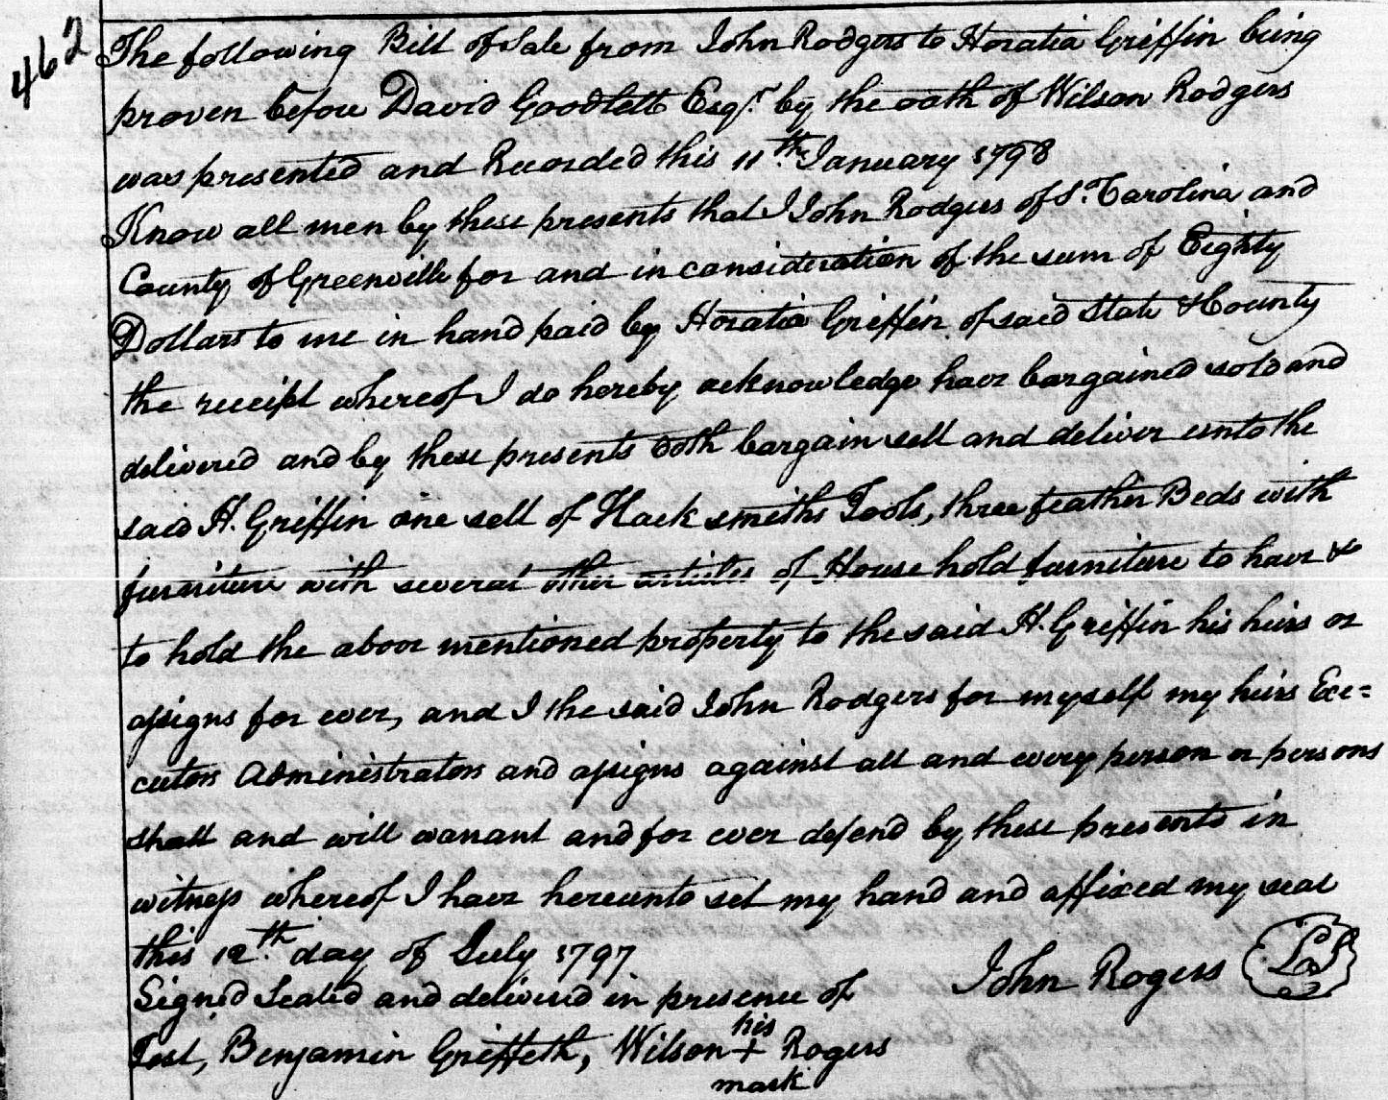 462
The following Bill of Sale from John Rodgers to Horatia Griffin being
proven before David Goodlett Esqr. by the oath of Wilson Rodgers
was presented and Recorded this 11th January 1798
Know all men by these presents that I John Rodgers of S. Carolina and
County of Greenville for and in consideration of the sum of Eighty
Dollars to me in hand paid by Horatia Griffin of said State & County
the receipt whereof I do hereby acknowledge have bargained sold and
delivered and by these presents doth bargain sell and deliver unto the
said H. Griffin one sett of Black smiths Tools, three feather Beds with
furniture with several other articles of House hold furniture to have &
to hold the above mentioned property to the said H. Griffin his heirs or
assigns for ever, and I the said John Rodgers for myself my heirs Exe=
cutors Administrators and assigns against all and every person or persons
shall and will warrant and for ever defend by these presents in
witness whereof I have hereunto set my hand and affixed my seal
this 12th. day of July 1797
Signed Sealed and delivered in presence of John Rogers LS
his
Test, Benjamin Griffeth, Wilson + Rogers
mark